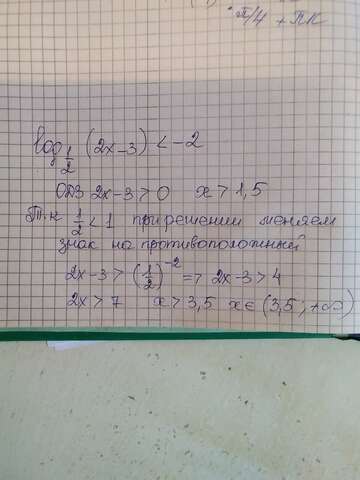 π/4 + πк
log_{1/2} (2x-3) < -2
ОДЗ 2x-3>0 x>1,5
Т.к 1/2 < 1 при решении меняем
знак на противоположный
2x-3 > (1/2)^{-2} => 2x-3>4
2x>7 x>3,5 x∈(3,5; +∞)